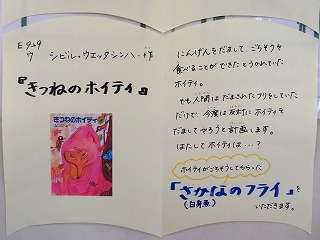 E929
ウ シビル・ウエッタシンハ・作
『きつねのホイティ』
きつねのホイティ
にんげんをだまして、ごちそうを
食べることができたとうかれていた
ホイティ。
でも人間はだまされたフリをしていた
だけで、今度は反対にホイティを
だましてやろうと計画します。
はたしてホイティは…？
ホイティがごちそうしてもらった
「さかなのフライ」を
(白身魚)
いただきます。